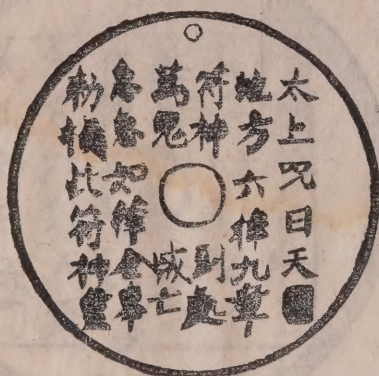 太上咒曰天圓
地方六律九章
符神到處
萬鬼滅亡
急急如律令奉
勅此符神靈